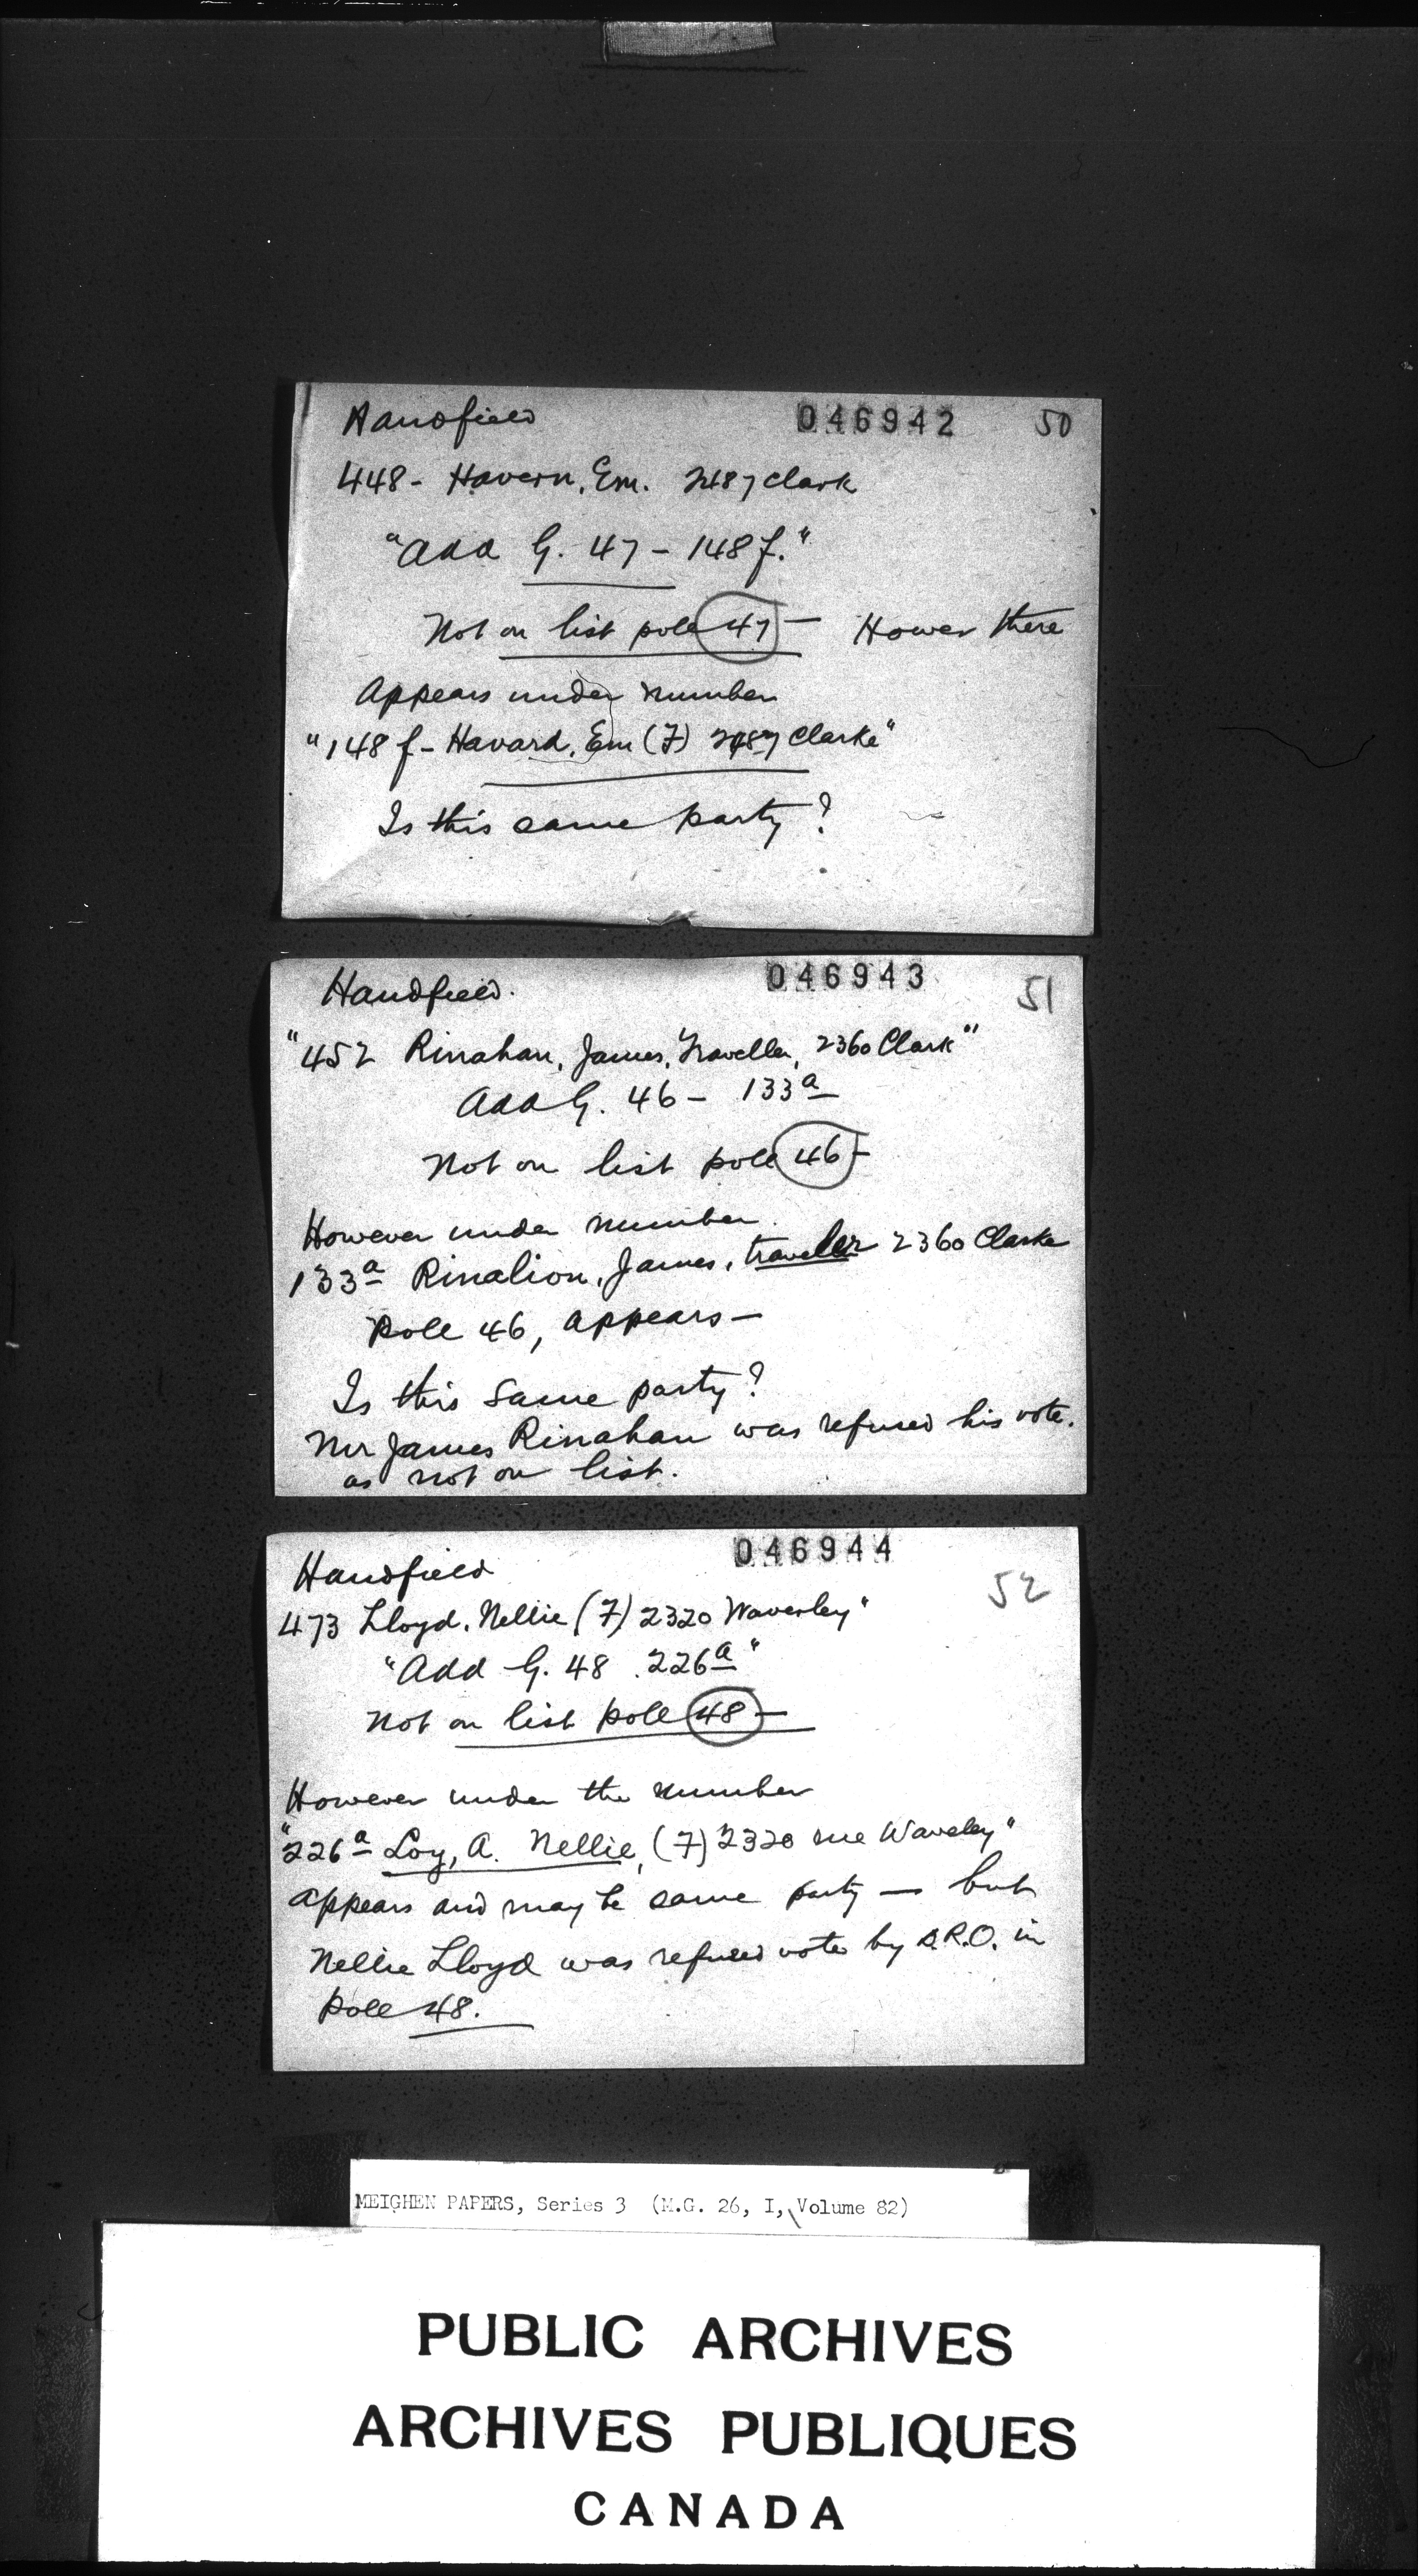 Handfield 046942 50
448 - Havern, Em. 2487 Clark
"Add G. 47 - 148 f."
Not on list pole 47 - Hower there
Appears under number
"148 f - Havard, Em (F) 2487 Clarke"
Is this same party?
Handfield. 046943 51
"452 Rinahan, James, Traveller, 2360 Clark"
Add G. 46 - 133a
Not on list pole 46 -
However under number
133a Rinalion, James, traveller 2360 Clarke
Pole 46, appears -
Is this same party?
Mr James Rinahan was refused his vote.
as not on list.
Handfield 046944 52
473 Lloyd, Nellie (F) 2320 Waverley"
"Add G. 48 .226a"
Not on list pole 48 -
However under the number
"226a Loy, A. Nellie, (F) 2320 rue Waveley"
appears and may be same party - but
Nellie Lloyd was refused vote by D.R.O. in
pole 48.
MEIGHEN PAPERS, Series 3 (M.G. 26, I, Volume 82)
PUBLIC ARCHIVES
ARCHIVES PUBLIQUES
CANADA